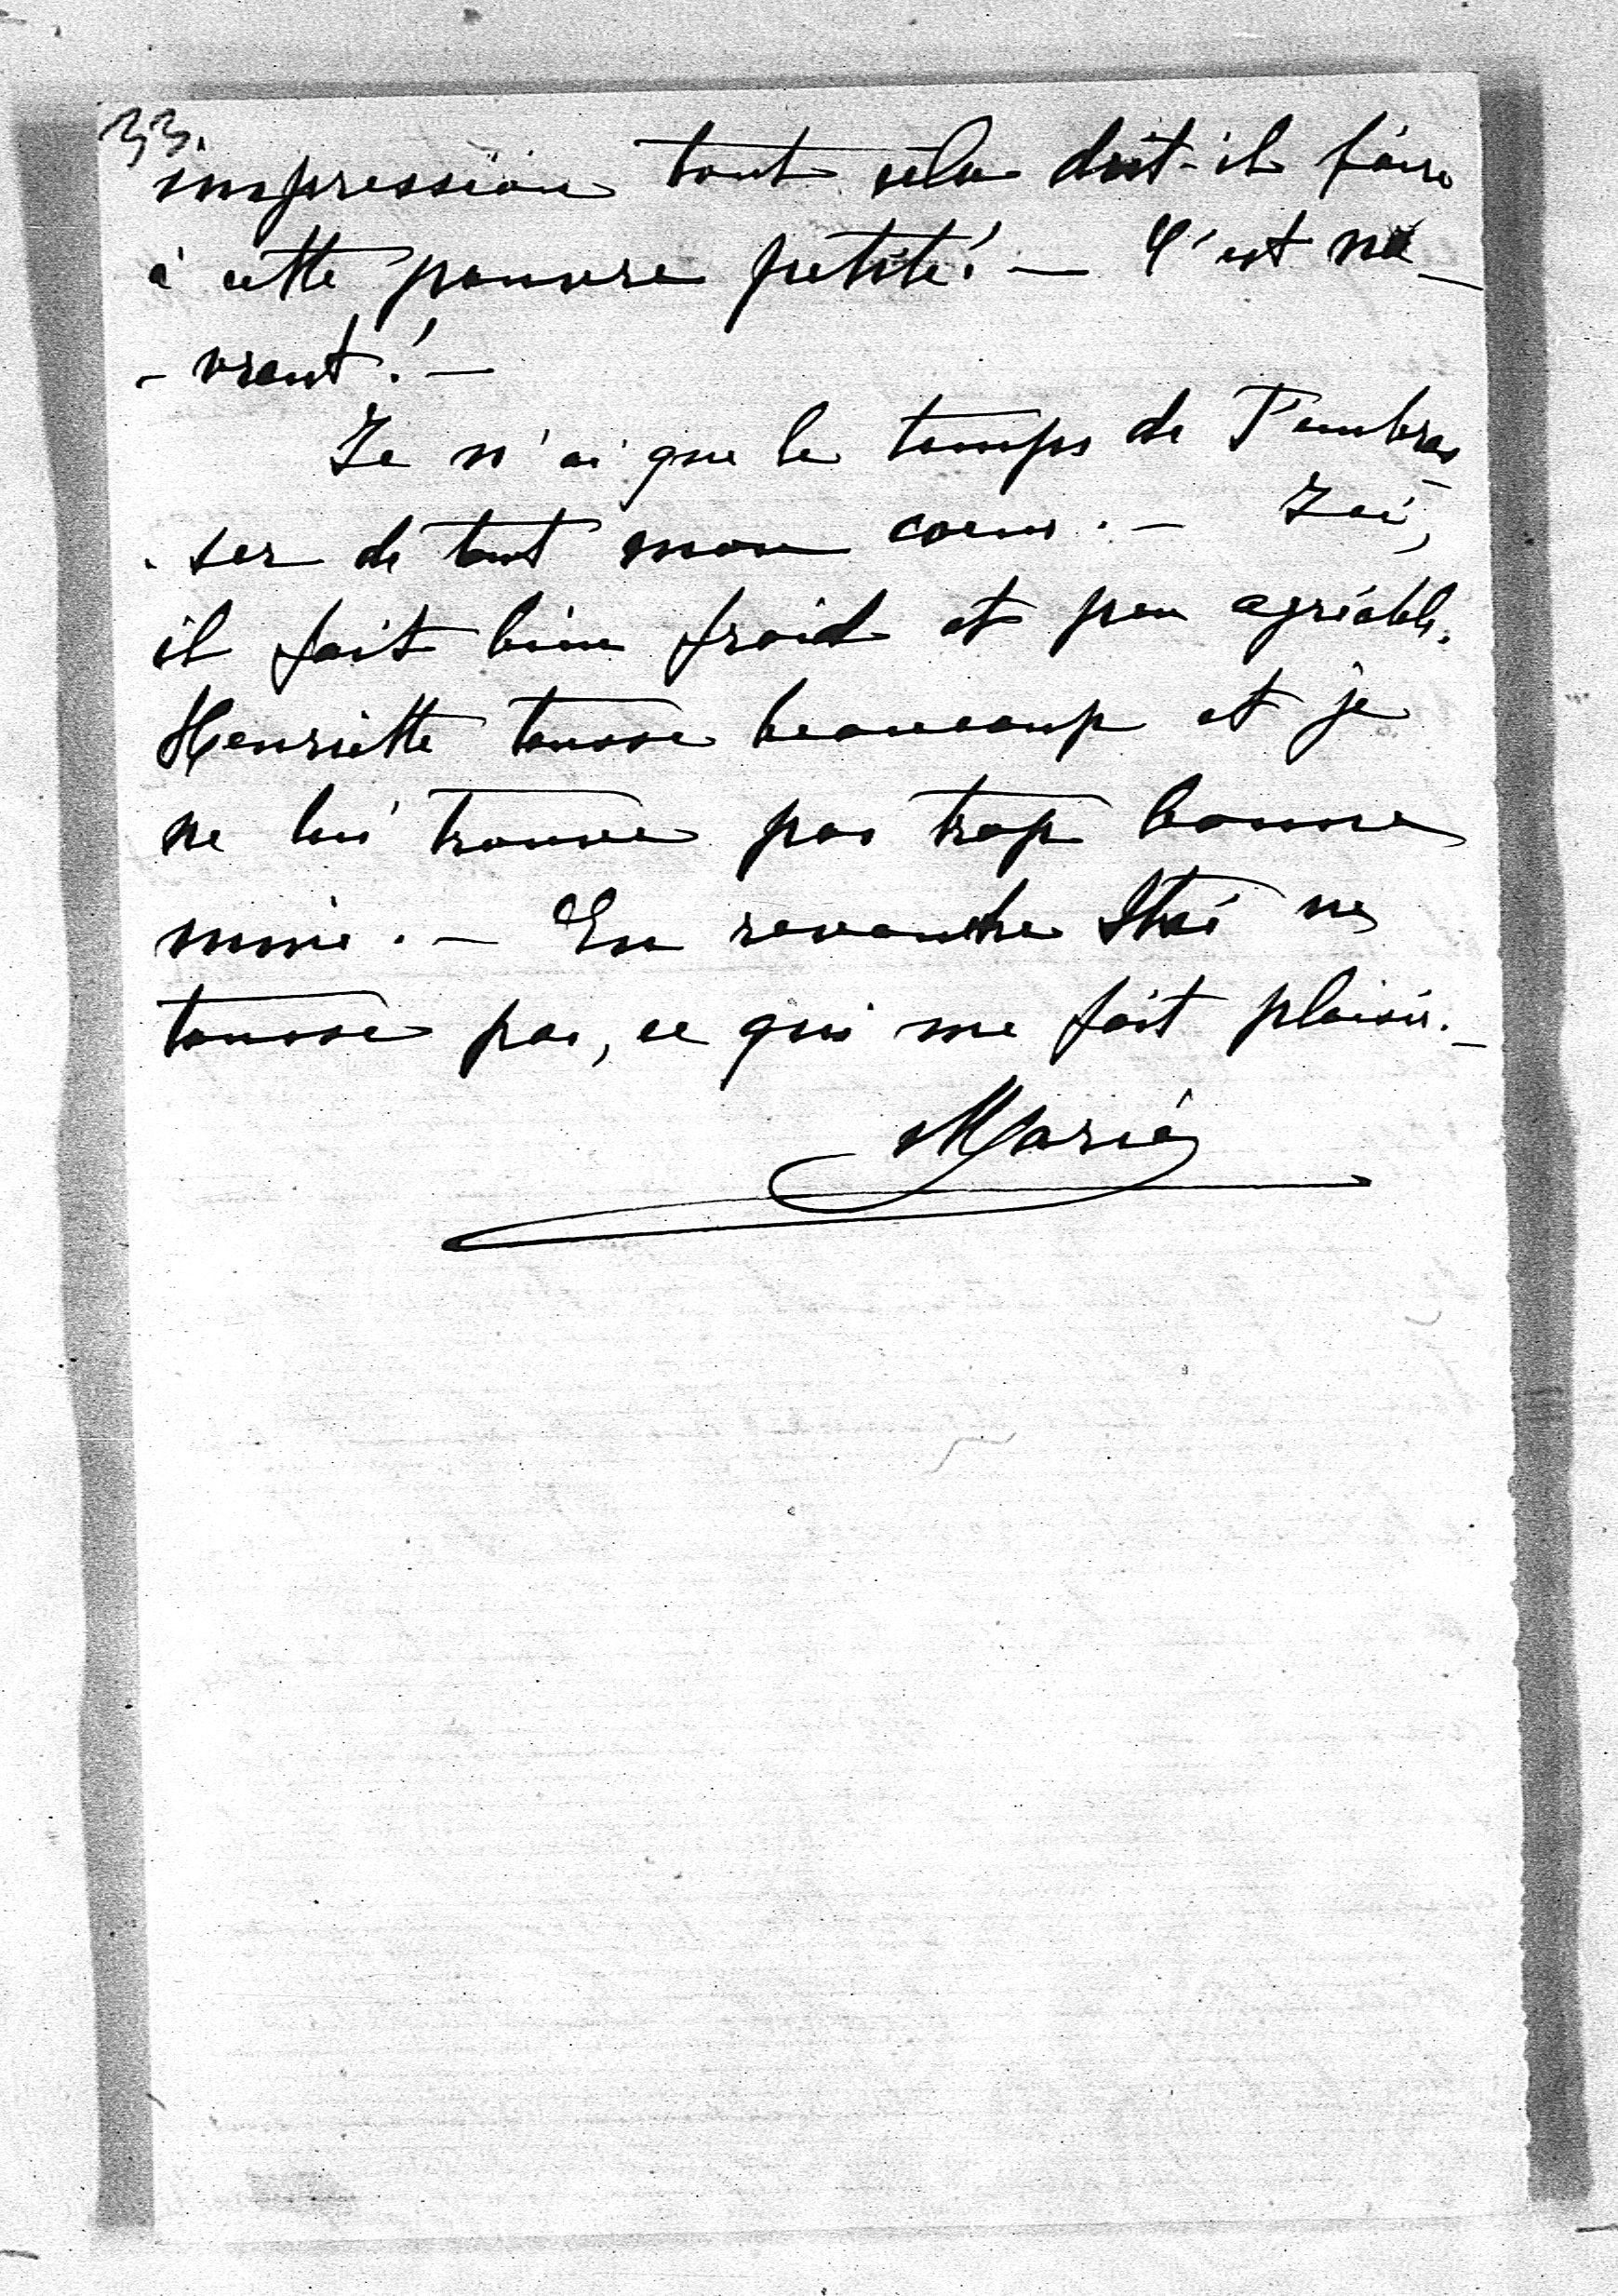 33.
impression tout cela doit-il faire
à cette pauvre petite! — C'est na-
- vrant! —
Je n'ai que le temps de T'embras-
- ser de tout mon coeur. — Ici,
il fait bien froid et peu agréable.
Henriette tousse beaucoup et je
ne lui trouve pas trop bonne
mine. — En revanche ne
tousse pas, ce qui me fait plaisir. —
Marie